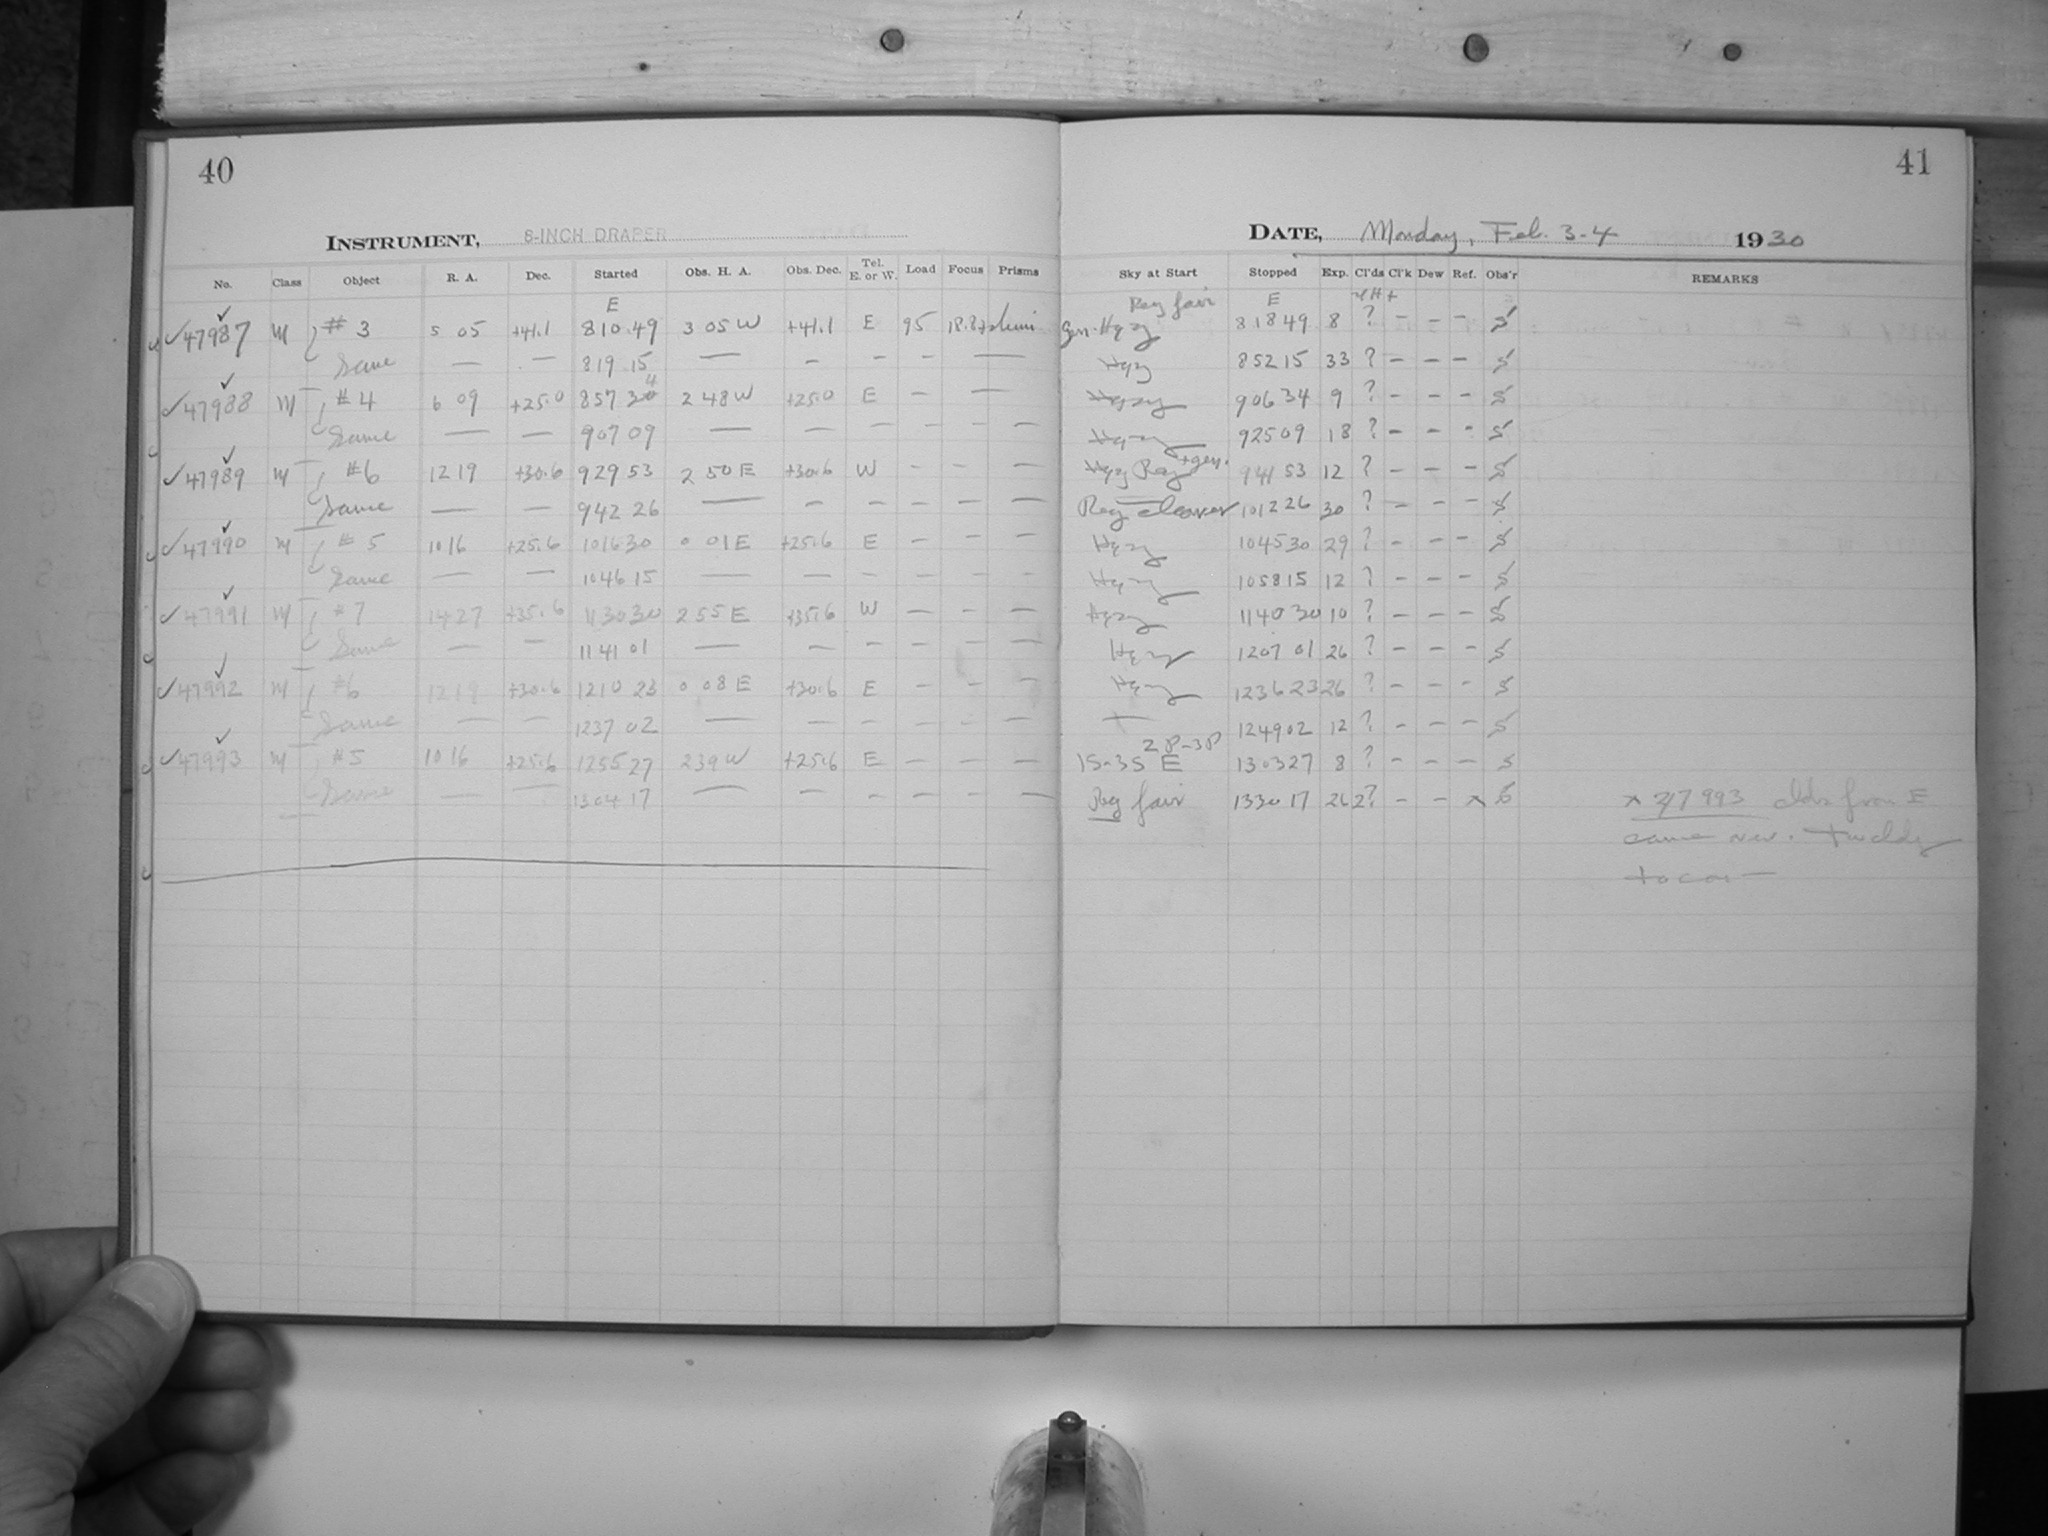 40
INSTRUMENT, 8-INCH DRAPER
No. Class Object R. A. Dec. Started Obs. H. A. Obs. Dec. Tel. E. or W. Load Focus Prisms
E
47987 M #3 5 05 +41.1 810 49 3 05 W +41.1 E 95
Same — — 819 15 — — — — —
47988 M #4 6 09 +25.0 857 34 2 48 W +25.0 E — —
Same — — 907 09 — — — — — —
47989 M #6 12 19 +30.6 929 53 2 50 E +30.6 W — — —
Same — — 942 26 — — — — — —
47990 M #5 10 16 +25.6 1016 30 0 01 E +25.6 E — — —
Same — — 1046 15 — — — — — —
47991 M #7 14 27 +35.6 1130 30 2 55 E +35.6 W — — —
Same — — 1141 01 — — — — — —
47992 M #6 12 19 +30.6 1210 23 0 08 E +30.6 E — — —
Same — — 1237 02 — — — — — —
47993 M #5 10 16 +25.6 1255 27 2 39 W +25.6 E — — —
Same — — 1304 17 — — — — — —
41
DATE, Monday, Feb. 3-4 1930
Sky at Start Stopped Exp. Cl'ds Cl'k Dew Ref. Obs'r REMARKS
fair E
Hazy 818 49 8 ? — — — S
Hazy 852 15 33 ? — — — S
Hazy 906 34 9 ? — — — S
Hazy 925 09 18 ? — — - S
Hazy 941 53 12 ? — — — S
clearer 1012 26 30 ? — — — S
Hazy 1045 30 29 ? — — — S
Hazy 1058 15 12 ? — — — S
Hazy 1140 30 10 ? — — — S
Hazy 1207 01 26 ? — — — S
Hazy 1236 23 26 ? — — - S
— 1249 02 12 ? — — — S
2P-3P
1S-3S E 1303 27 8 ? — — — S
fair 1330 17 26 2? — — x S x 47993 clds from E
came